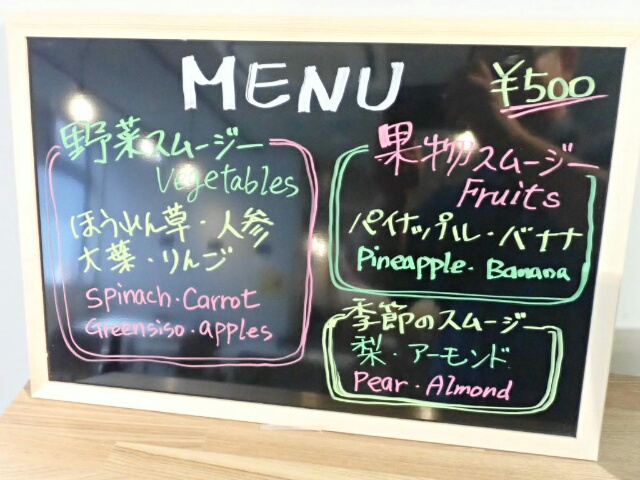 MENU
¥500
野菜スムージー
Vegetables
ほうれん草・人参
大葉・りんご
Spinach・Carrot
Greensiso・apples
果物スムージー
Fruits
パイナップル・バナナ
Pineapple・Banana
季節のスムージー
梨・アーモンド
Pear・Almond